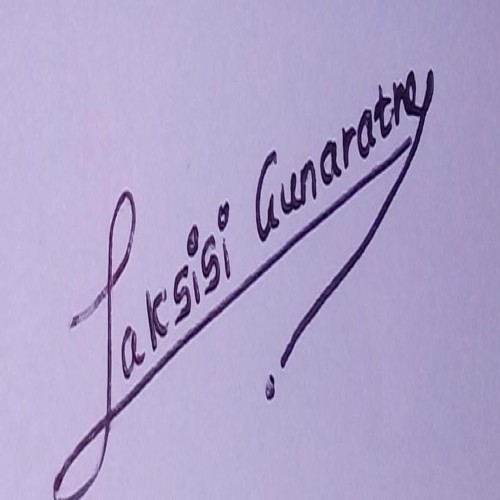 Laksisi Gunaratne